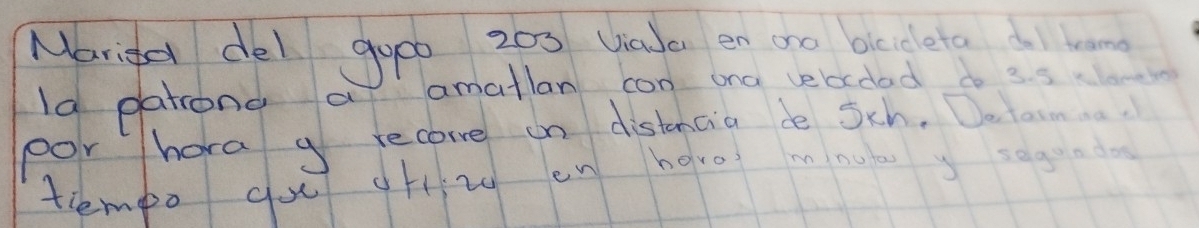 Marisol del gupo 203 viaja en una bicicleta del tramo
la patrona a amatlan con una velocdad de 3.5 kilometros
por hora y recorre un distancia de 5kh. Determina el
tiempo que utilizo en horas minutos y segundos